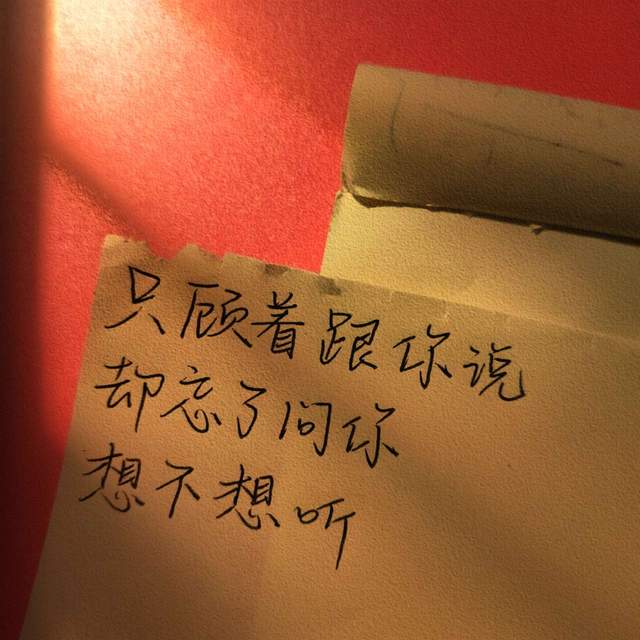 只顾着跟你说
却忘了问你
想不想听